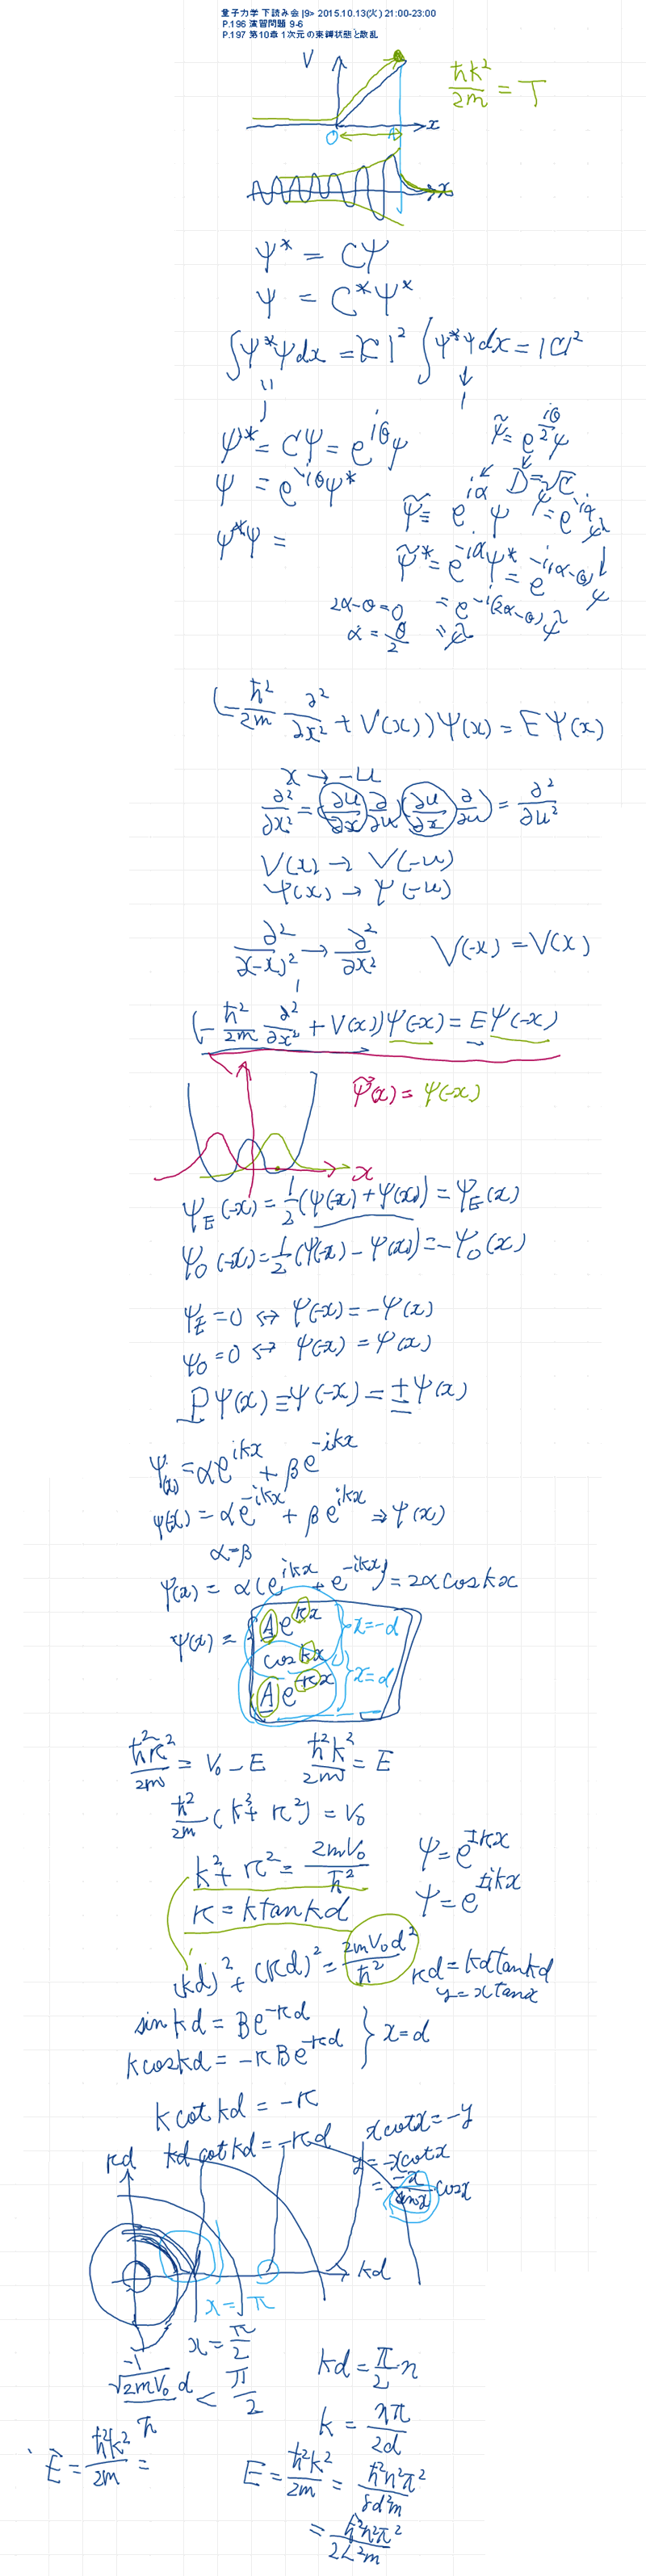 量子力学 下読み会 |9> 2015.10.13(火) 21:00-23:00
P.196 演習問題 9-6
P.197 第10章 1次元の束縛状態と散乱
V
ħk²/2m = T
x
0
x
ψ* = Cψ
ψ = C*ψ*
∫ψ*ψdx = |C|² ∫ψ*ψdx = |C|²
ψ* = Cψ = e^{iθ}ψ
ψ̃ = e^{iθ/2}ψ
ψ = e^{-iθ}ψ*
D = √C
ψ̃ = e^{iα}ψ
ψ*ψ =
ψ̃* = e^{-iα}ψ* = e^{-i(α-θ)}ψ
2α-θ=0 = e^{-i(2α-θ)}ψ̃
α = θ/2 = ψ̃
(-ħ²/2m ∂²/∂x² + V(x))ψ(x) = Eψ(x)
x → -u
∂²/∂x² = (∂u/∂x)∂/∂u (∂u/∂x ∂/∂u) = ∂²/∂u²
V(x) → V(-u)
ψ(x) → ψ(-u)
∂²/∂(-x)² → ∂²/∂x² V(-x) = V(x)
(-ħ²/2m ∂²/∂x² + V(x))ψ(-x) = Eψ(-x)
ψ̃(x) = ψ(-x)
x
ψ_E(-x) = 1/2(ψ(-x) + ψ(x)) = ψ_E(x)
ψ_O(-x) = 1/2(ψ(-x) - ψ(x)) = -ψ_O(x)
ψ_E = 0 ↔ ψ(-x) = -ψ(x)
ψ_O = 0 ↔ ψ(-x) = ψ(x)
Pψ(x) ≡ ψ(-x) = ±ψ(x)
ψ(x) = αe^{ikx} + βe^{-ikx}
ψ(-x) = αe^{-ikx} + βe^{ikx} ⇒ ψ(x)
α=β
ψ(x) = α(e^{ikx} + e^{-ikx}) = 2α cos kx
ψ(x) = { Ae^{κx}
x=-d
cos kx
x=d
Ae^{-κx}
ħ²κ²/2m = V₀ - E ħ²k²/2m = E
ħ²/2m (k² + κ²) = V₀
k² + κ² = 2mV₀/ħ²
ψ = e^{±κx}
κ = k tan kd
ψ = e^{±ikx}
(kd)² + (κd)² = 2mV₀d²/ħ²
κd = kd tan kd
y = x tan x
sin kd = Be^{-κd}
k cos kd = -κBe^{-κd} } x=d
k cot kd = -κ
x cot x = -y
kd cot kd = -κd
y = -x cot x
= -x/sin x cos x
κd
kd
x = π
x = π/2
√2mV₀ d/ħ < π/2
kd = π/2 n
k = nπ/2d
E = ħ²k²/2m =
E = ħ²k²/2m = ħ²n²π²/8d²m
= ħ²n²π²/2L²m